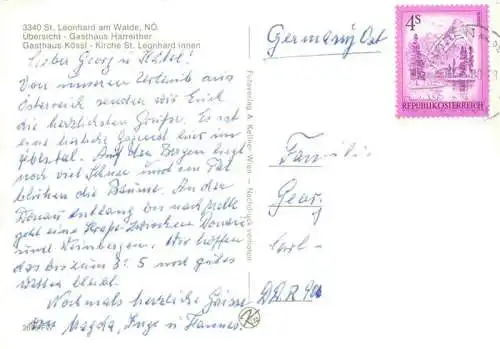 3340 St. Leonhard am Walde, NÖ.
Übersicht - Gasthaus Harreither
Gasthaus Kössl - Kirche St. Leonhard innen
Lieber Georg u. Kätel!
Von unserem Urlaub aus
Österreich senden wir Euch
die herzlichsten Grüße. Es ist
eine herrliche Gegend hier im
Ybbstal. Auf den Bergen liegt
noch viel Schnee und im Tal
blühen die Bäume. An der
Donau entlang bis nach Melk
geht eine Straße zwischen Donau
und Weinbergen. Wir hoffen
das bis zum 3. 5 noch gutes
Wetter bleibt.
Nochmals herzliche Grüsse
Magda, Inge u. Hannes.
Fotoverlag A. Kellner-Wien — Nachdruck verboten
Germany Ost
4S
REPUBLIK ÖSTERREICH
Familie
Georg
Carl-
DDR 90